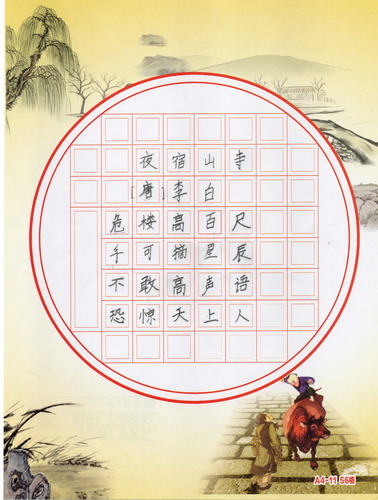 夜宿山寺
[唐]李白
危楼高百尺
手可摘星辰
不敢高声语
恐惊天上人
A4-11 56格